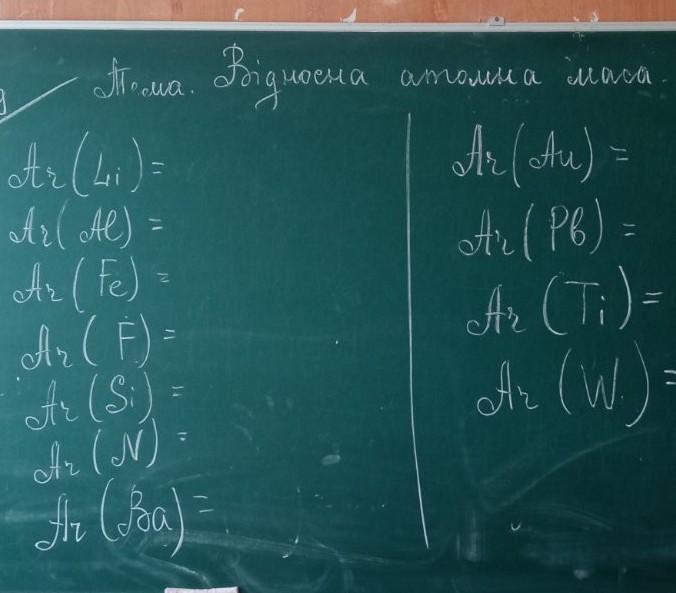 Тема. Відносна атомна маса.
Ar (Li) =
Ar (Al) =
Ar (Fe) =
Ar (F) =
Ar (Si) =
Ar (N) =
Ar (Ba) =
Ar (Au) =
Ar (Pb) =
Ar (Ti) =
Ar (W) =